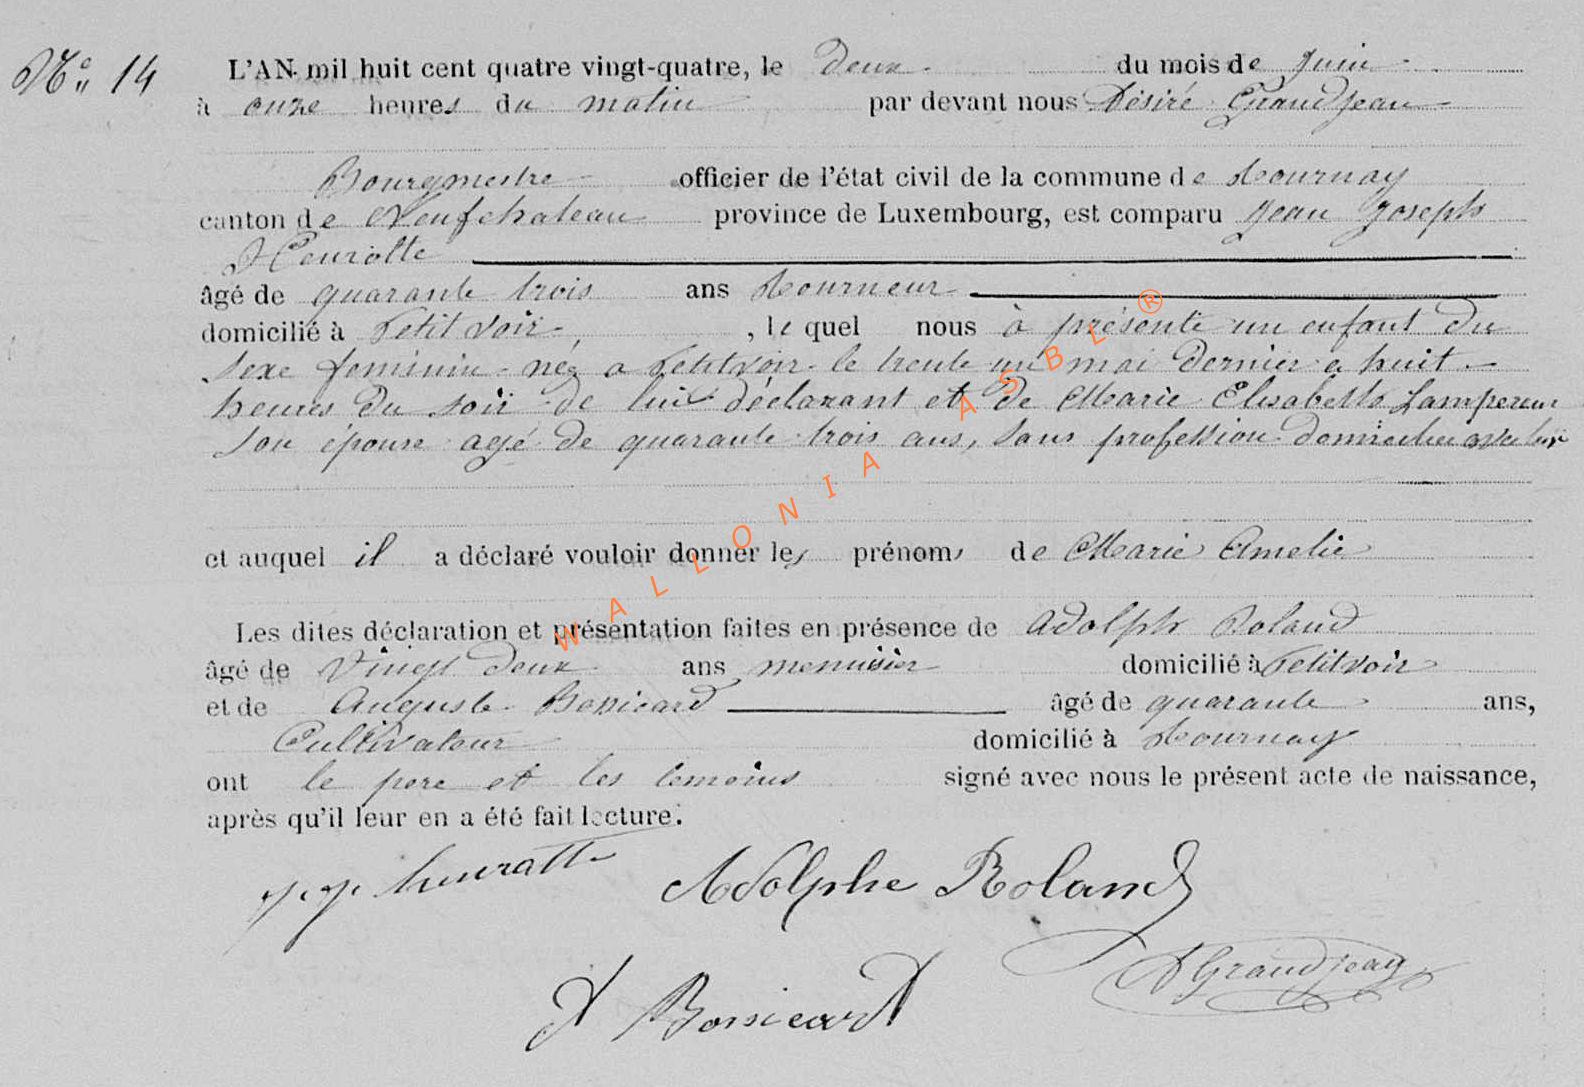 N° 14
L'AN mil huit cent quatre vingt-quatre, le deux du mois de Juin
à onze heures du matin par devant nous Désiré Grandjean
Bourgmestre officier de l'état civil de la commune de Tournay
canton de Neufchateau province de Luxembourg, est comparu Jean Joseph
Heurotte
âgé de quarante trois ans Tourneur
domicilié à Petitvoir, , le quel nous à présenté un enfant du
sexe feminin née a Petitvoir le trente un mai dernier a huit
heures du soir de lui déclarant et de Marie Elisabeth Lampereur
son épouse agé de quarante trois ans, sans profession domiciliée
et auquel il a déclaré vouloir donner les prénoms de Marie Amelie
Les dites déclaration et présentation faites en présence de Adolph Roland
âgé de Vingt deux ans menuisier domicilié à Petitvoir
et de Auguste Bossicard âgé de quarante ans,
Cultivateur domicilié à Tournay
ont le pere et les temoins signé avec nous le présent acte de naissance,
après qu'il leur en a été fait lecture.
J. J. heurotte Adolphe Roland
A Bossicard D Grandjean
WALLONIA ASBL ®